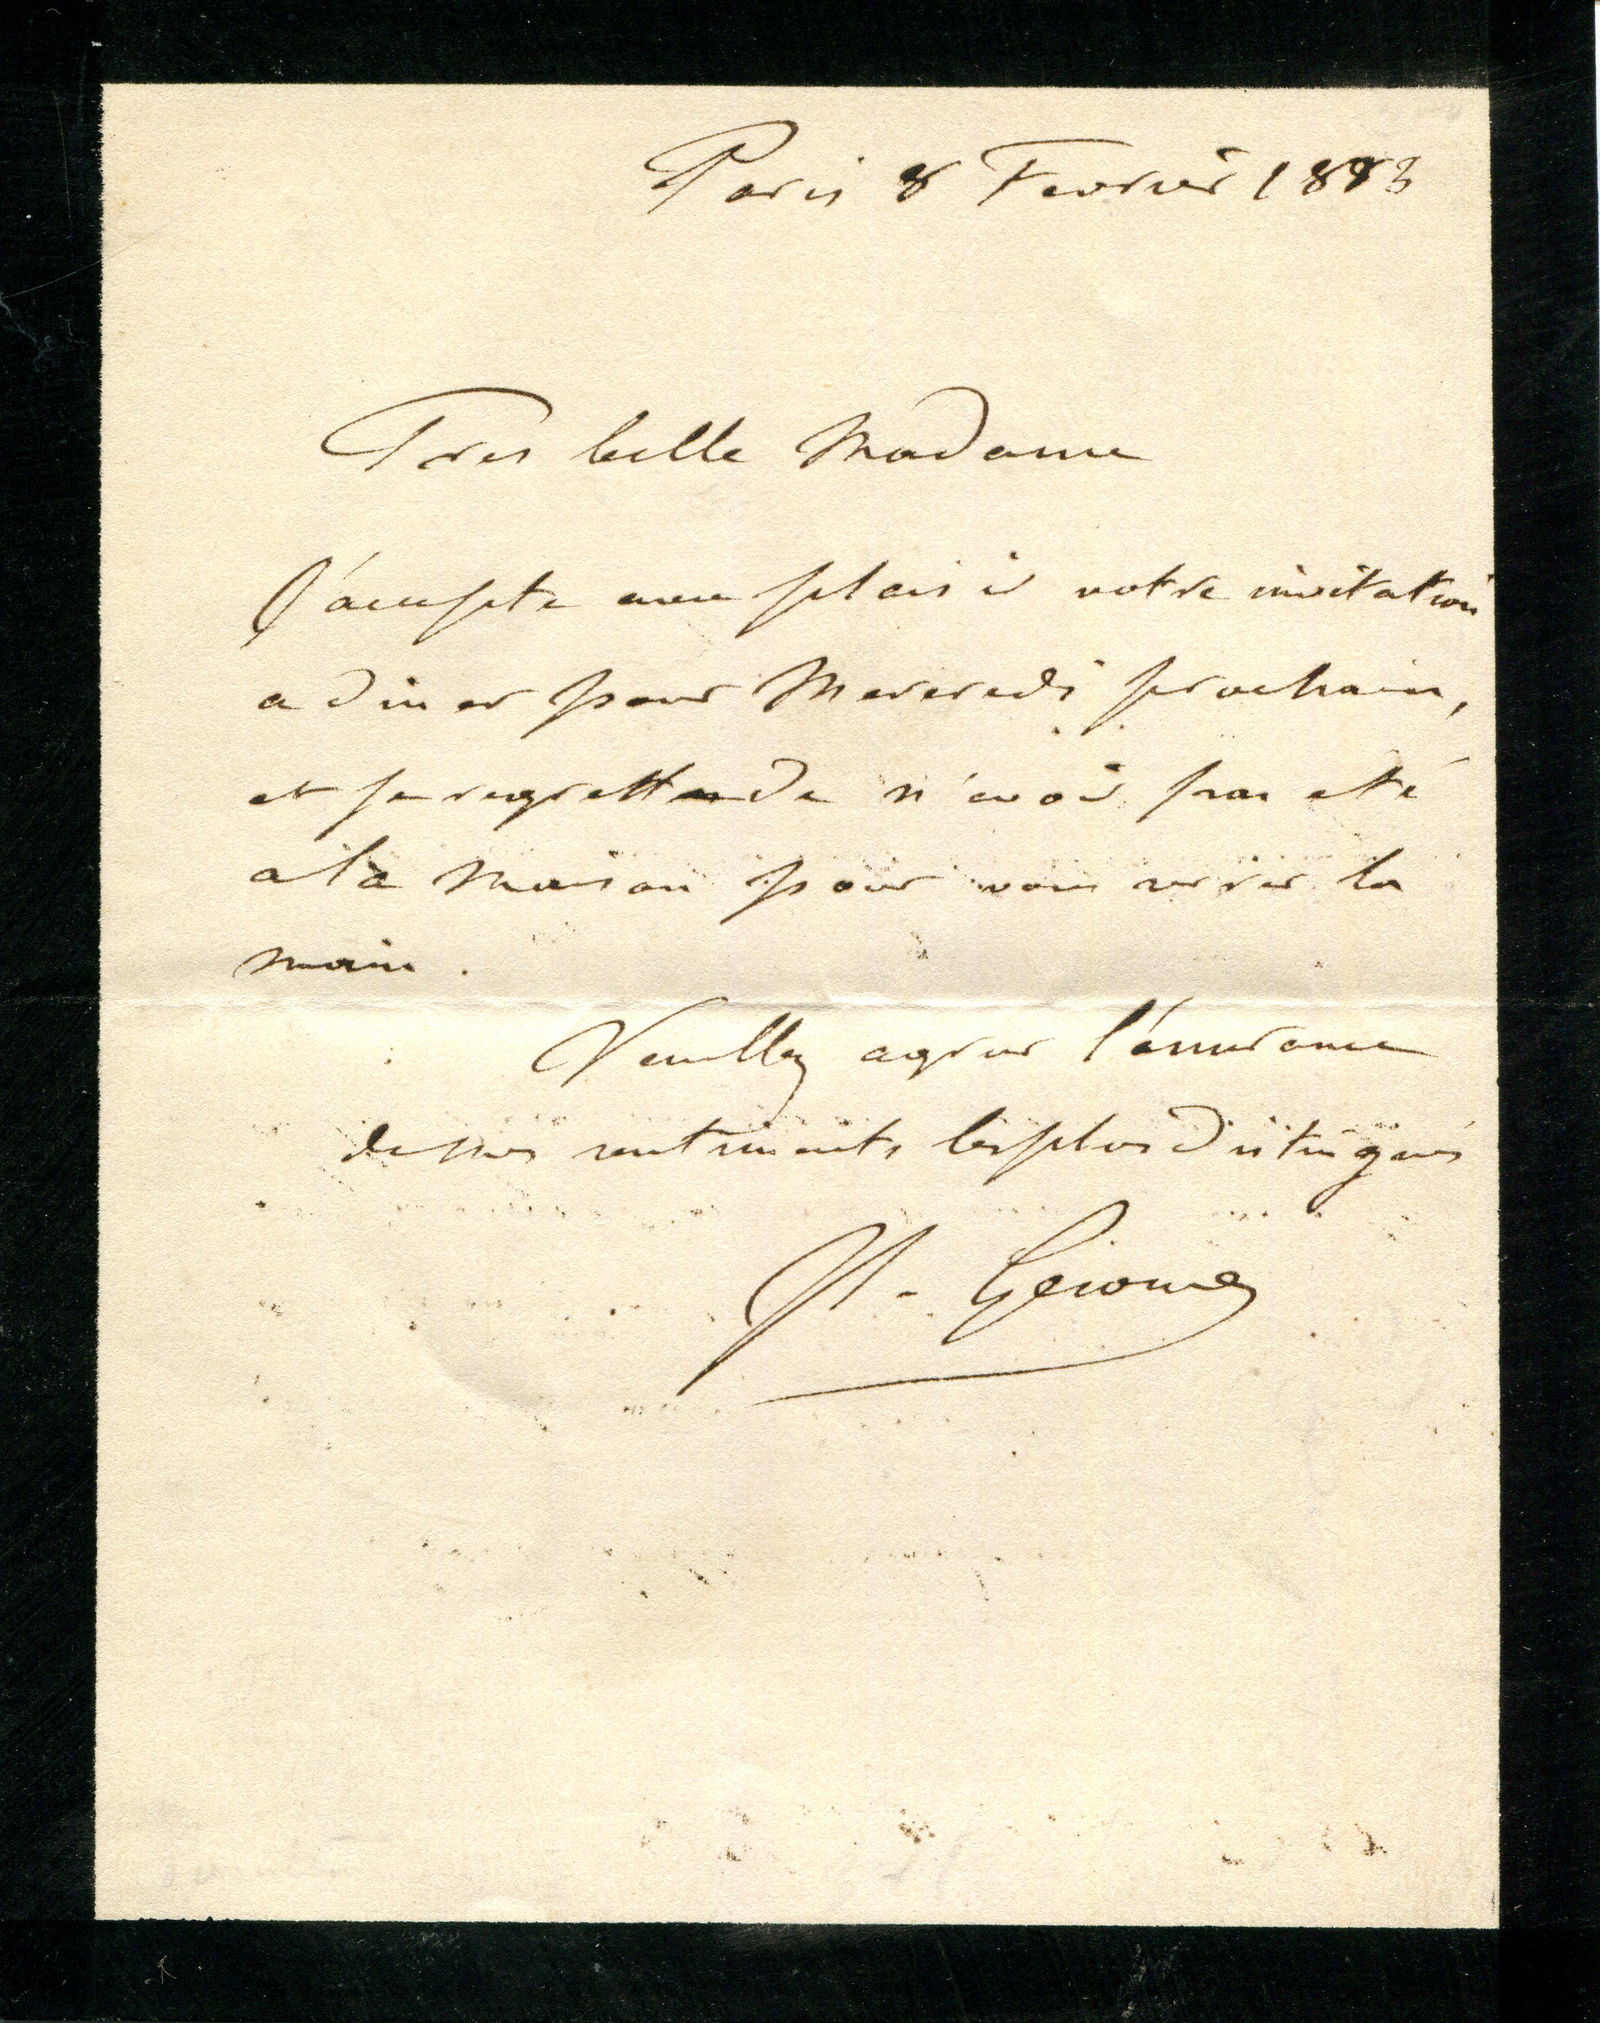 Paris 8 Fevrier 1883
Tres belle Madame
J'accepte avec plaisir votre invitation
a diner pour Mercredi prochain,
et je regrette de n'avoir pas eté
a la maison pour vous serrer la
main.
Veuillez agreer l'assurance
de mes sentiments les plus distingués
Gérome